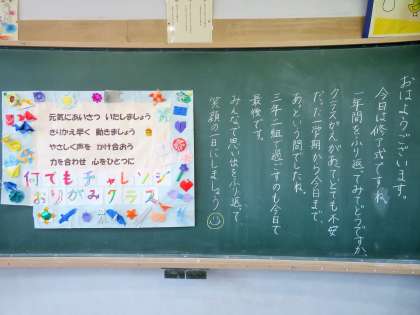 おはようございます。
今日は修了式ですね。
一年間をふり返ってみてどうですか。
クラスがえがあってとても不安
だった一学期から今日まで、
あっという間でしたね。
三年二組で過ごすのも今日で
最後です。
みんなで思い出をふり返って
笑顔の一日にしましょう
元気にあいさつ いたしましょう
きりかえ早く 動きましょう
やさしく声を かけ合おう
力を合わせ 心をひとつに
何でもチャレンジ
おりがみクラス